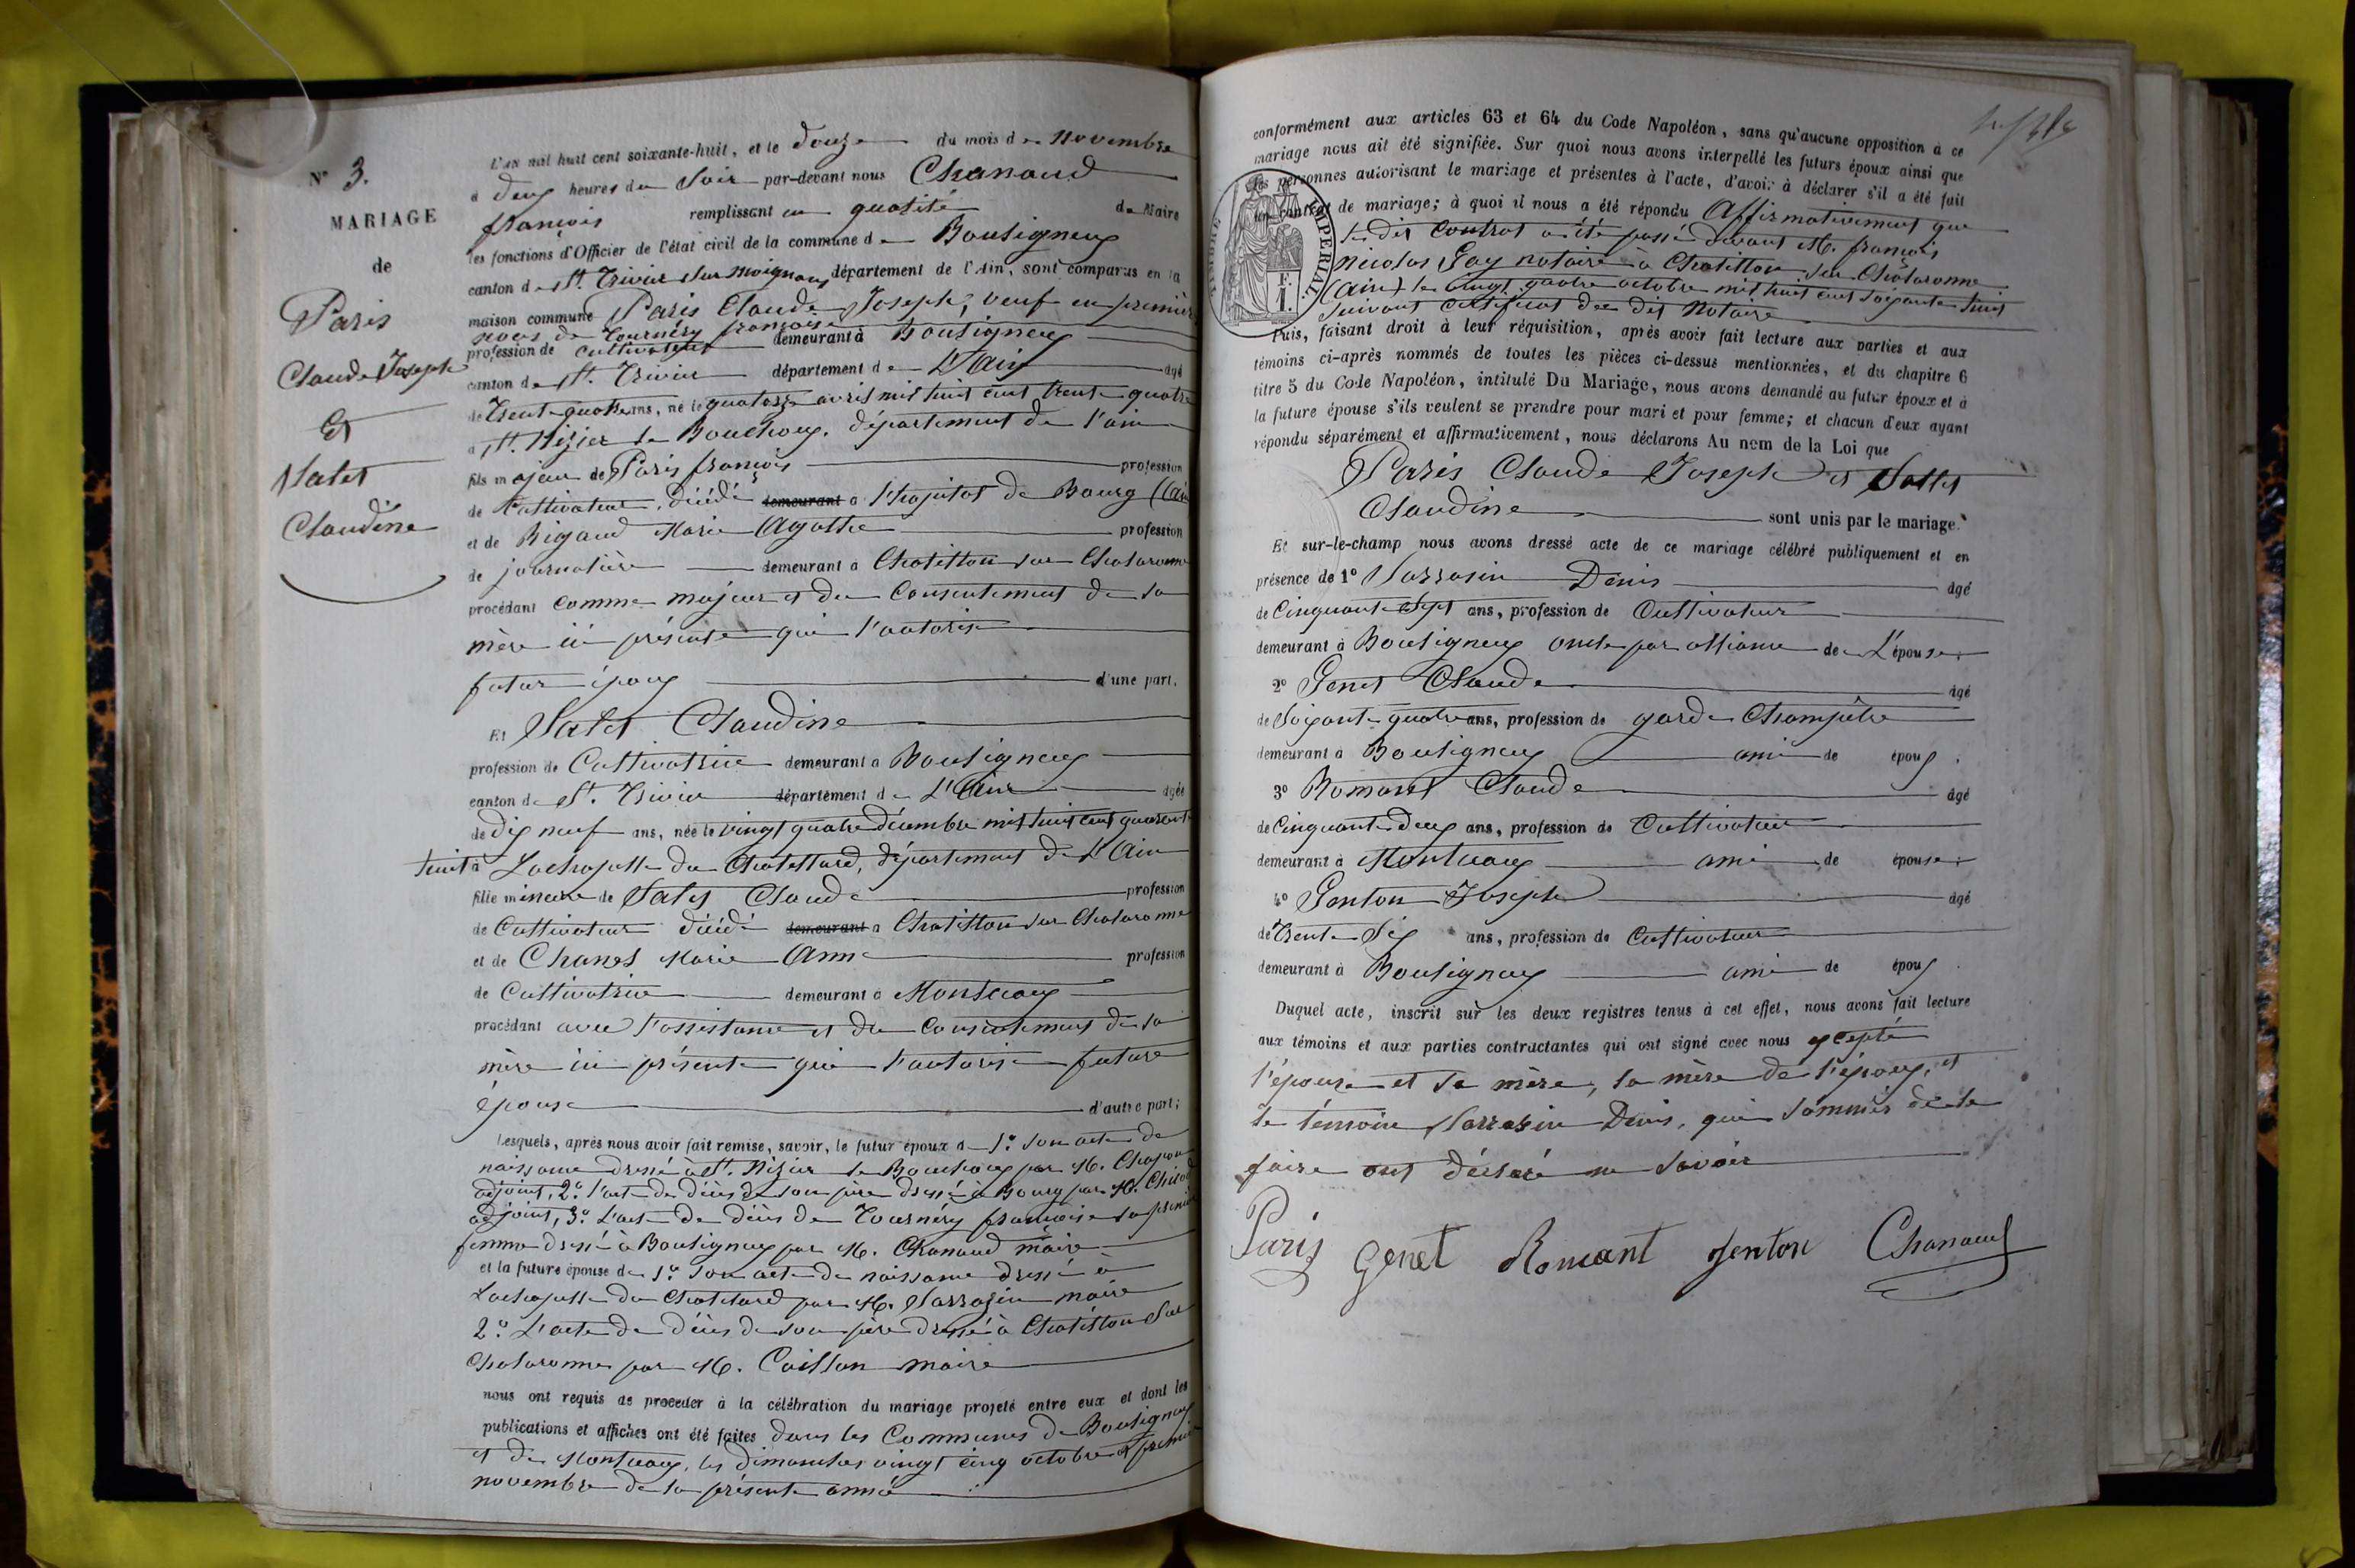 N° 3.
MARIAGE
de
Paris
Claude Joseph
Et
Salet
Claudine
L'an mil huit cent soixante-huit, et le douze du mois de novembre
à deux heures du Soir par-devant nous Chanaud
françois remplissant en qualité de Maire
les fonctions d'Officier de l'état civil de la commune de Bouligneux
canton de St. Trivier sur Moignans département de l'Ain, sont comparus en la
maison commune Paris Claude Joseph, veuf en premières
noces de Tournéry françoise
profession de cultivateur demeurant à Bouligneux
canton de St. Trivier département de L'Ain âgé
de Trente quatre ans, né le quatorze avril mil huit cent trente quatre
à St. Nizier le Bouchoux, département de l'ain
fils majeur de Paris françois profession
de Cultivateur, décédé demeurant à l'hopital de Bourg (Ain
et de Rigaud Marie Agathe profession
de journalière demeurant à Chatillon sur Chalaronne
procédant comme majeur et du Consentement de sa
mère ici présente qui l'autorise
futur époux d'une part,
Et Salet Claudine
profession de Cultivatrice demeurant à Bouligneux
canton de St. Trivier département de L'Ain âgée
de dix neuf ans, née le vingt quatre décembre mil huit cent quarante
huit à Lachapelle du Chatellard, département de L'Ain
fille mineure de Salet Claude profession
de Cultivateur décédé demeurant à Chatillon sur Chalaronne
et de Chanel Marie Anne profession
de Cultivatrice demeurant à Montceaux
procédant avec l'assistance et du Consentement de sa
mère ici présente qui l'autorise future
épouse d'autre part;
Lesquels, après nous avoir fait remise, savoir, le futur époux d 1° son acte de
naissance dressé à St. Nizier le Bouchoux par M. Chapon
adjoint, 2° l'acte de décès de son père dressé à Bourg par M.
adjoint, 3° L'acte de décès de Tournéry françoise sa première
femme dressé à Bouligneux par M. Chanaud maire
et la future épouse de 1° son acte de naissance dressé à
Lachapelle du Chatelard par M. Sarrazin maire
2° L'acte de décès de son père dressé à Chatillon sur
Chalaronne par M. Caillon maire
nous ont requis de procéder à la célébration du mariage projeté entre eux et dont les
publications et affiches ont été faites dans les Communes de Bouligneux
et de Montceaux, les dimanches vingt cinq octobre et premier
novembre de la présente année
conformément aux articles 63 et 64 du Code Napoléon, sans qu'aucune opposition à ce
mariage nous ait été signifiée. Sur quoi nous avons interpellé les futurs époux ainsi que
les personnes autorisant le mariage et présentes à l'acte, d'avoir à déclarer s'il a été fait
un contrat de mariage; à quoi il nous a été répondu Affirmativement que
le dit Contrat a été passé devant M. françois
Nicolas Gay notaire à Chatillon sur Chalaronne
(Ain) le vingt quatre octobre mil huit cent soixante huit
suivant certificat du dit Notaire
TIMBRE IMPERIAL
F.
1.
Puis, faisant droit à leur réquisition, après avoir fait lecture aux parties et aux
témoins ci-après nommés de toutes les pièces ci-dessus mentionnées, et du chapitre 6
titre 5 du Code Napoléon, intitulé Du Mariage, nous avons demandé au futur époux et à
la future épouse s'ils veulent se prendre pour mari et pour femme; et chacun d'eux ayant
répondu séparément et affirmativement, nous déclarons Au nom de la Loi que
Paris Claude Joseph et Sallet
Claudine sont unis par le mariage.
Et sur-le-champ nous avons dressé acte de ce mariage célébré publiquement et en
présence de 1° Sarrasin Denis âgé
de Cinquante Sept ans, profession de Cultivateur
demeurant à Bouligneux oncle par alliance de L'épouse.
2° Genet Claude âgé
de Soixante quatre ans, profession de garde Champêtre
demeurant à Bouligneux ami de époux.
3° Romant Claude âgé
de Cinquante deux ans, profession de Cultivateur
demeurant à Montceaux ami de épouse.
4° Genton Joseph âgé
de Trente Six ans, profession de Cultivateur
demeurant à Bouligneux ami de époux
Duquel acte, inscrit sur les deux registres tenus à cet effet, nous avons fait lecture
aux témoins et aux parties contractantes qui ont signé avec nous excepté
l'épouse et sa mère, la mère de l'époux, et
le témoin Sarrasin Denis, qui sommés de le
faire ont déclaré ne savoir
Paris Genet Romant Jenton Chanaud